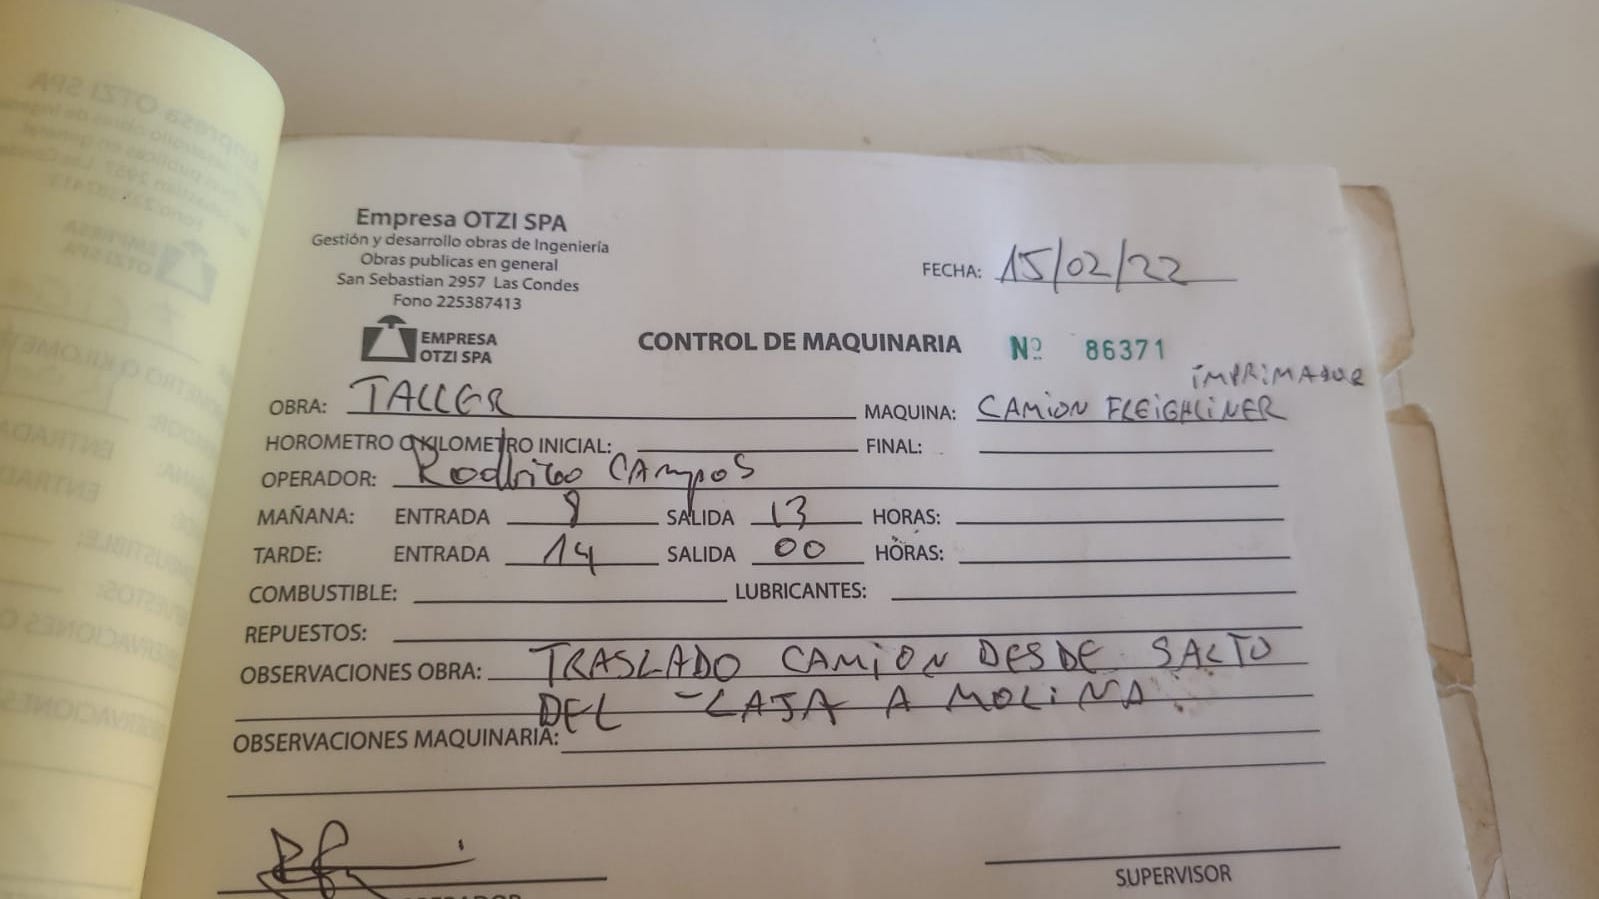 Empresa OTZI SPA
Gestión y desarrollo obras de Ingeniería
Obras publicas en general
San Sebastian 2957 Las Condes
Fono 225387413
EMPRESA
OTZI SPA
FECHA: 15/02/22
CONTROL DE MAQUINARIA Nº 86371
IMPRIMADOR
OBRA: TALLER MAQUINA: CAMION FLEIGHLINER
HOROMETRO O KILOMETRO INICIAL: FINAL:
OPERADOR: Rodrigo CAmpoS
MAÑANA: ENTRADA 8 SALIDA 13 HORAS:
TARDE: ENTRADA 14 SALIDA 00 HORAS:
COMBUSTIBLE: LUBRICANTES:
REPUESTOS:
OBSERVACIONES OBRA: TRASLADO CAMION DESDE SALTO
DEL LAJA A MOLINA
OBSERVACIONES MAQUINARIA:
SUPERVISOR